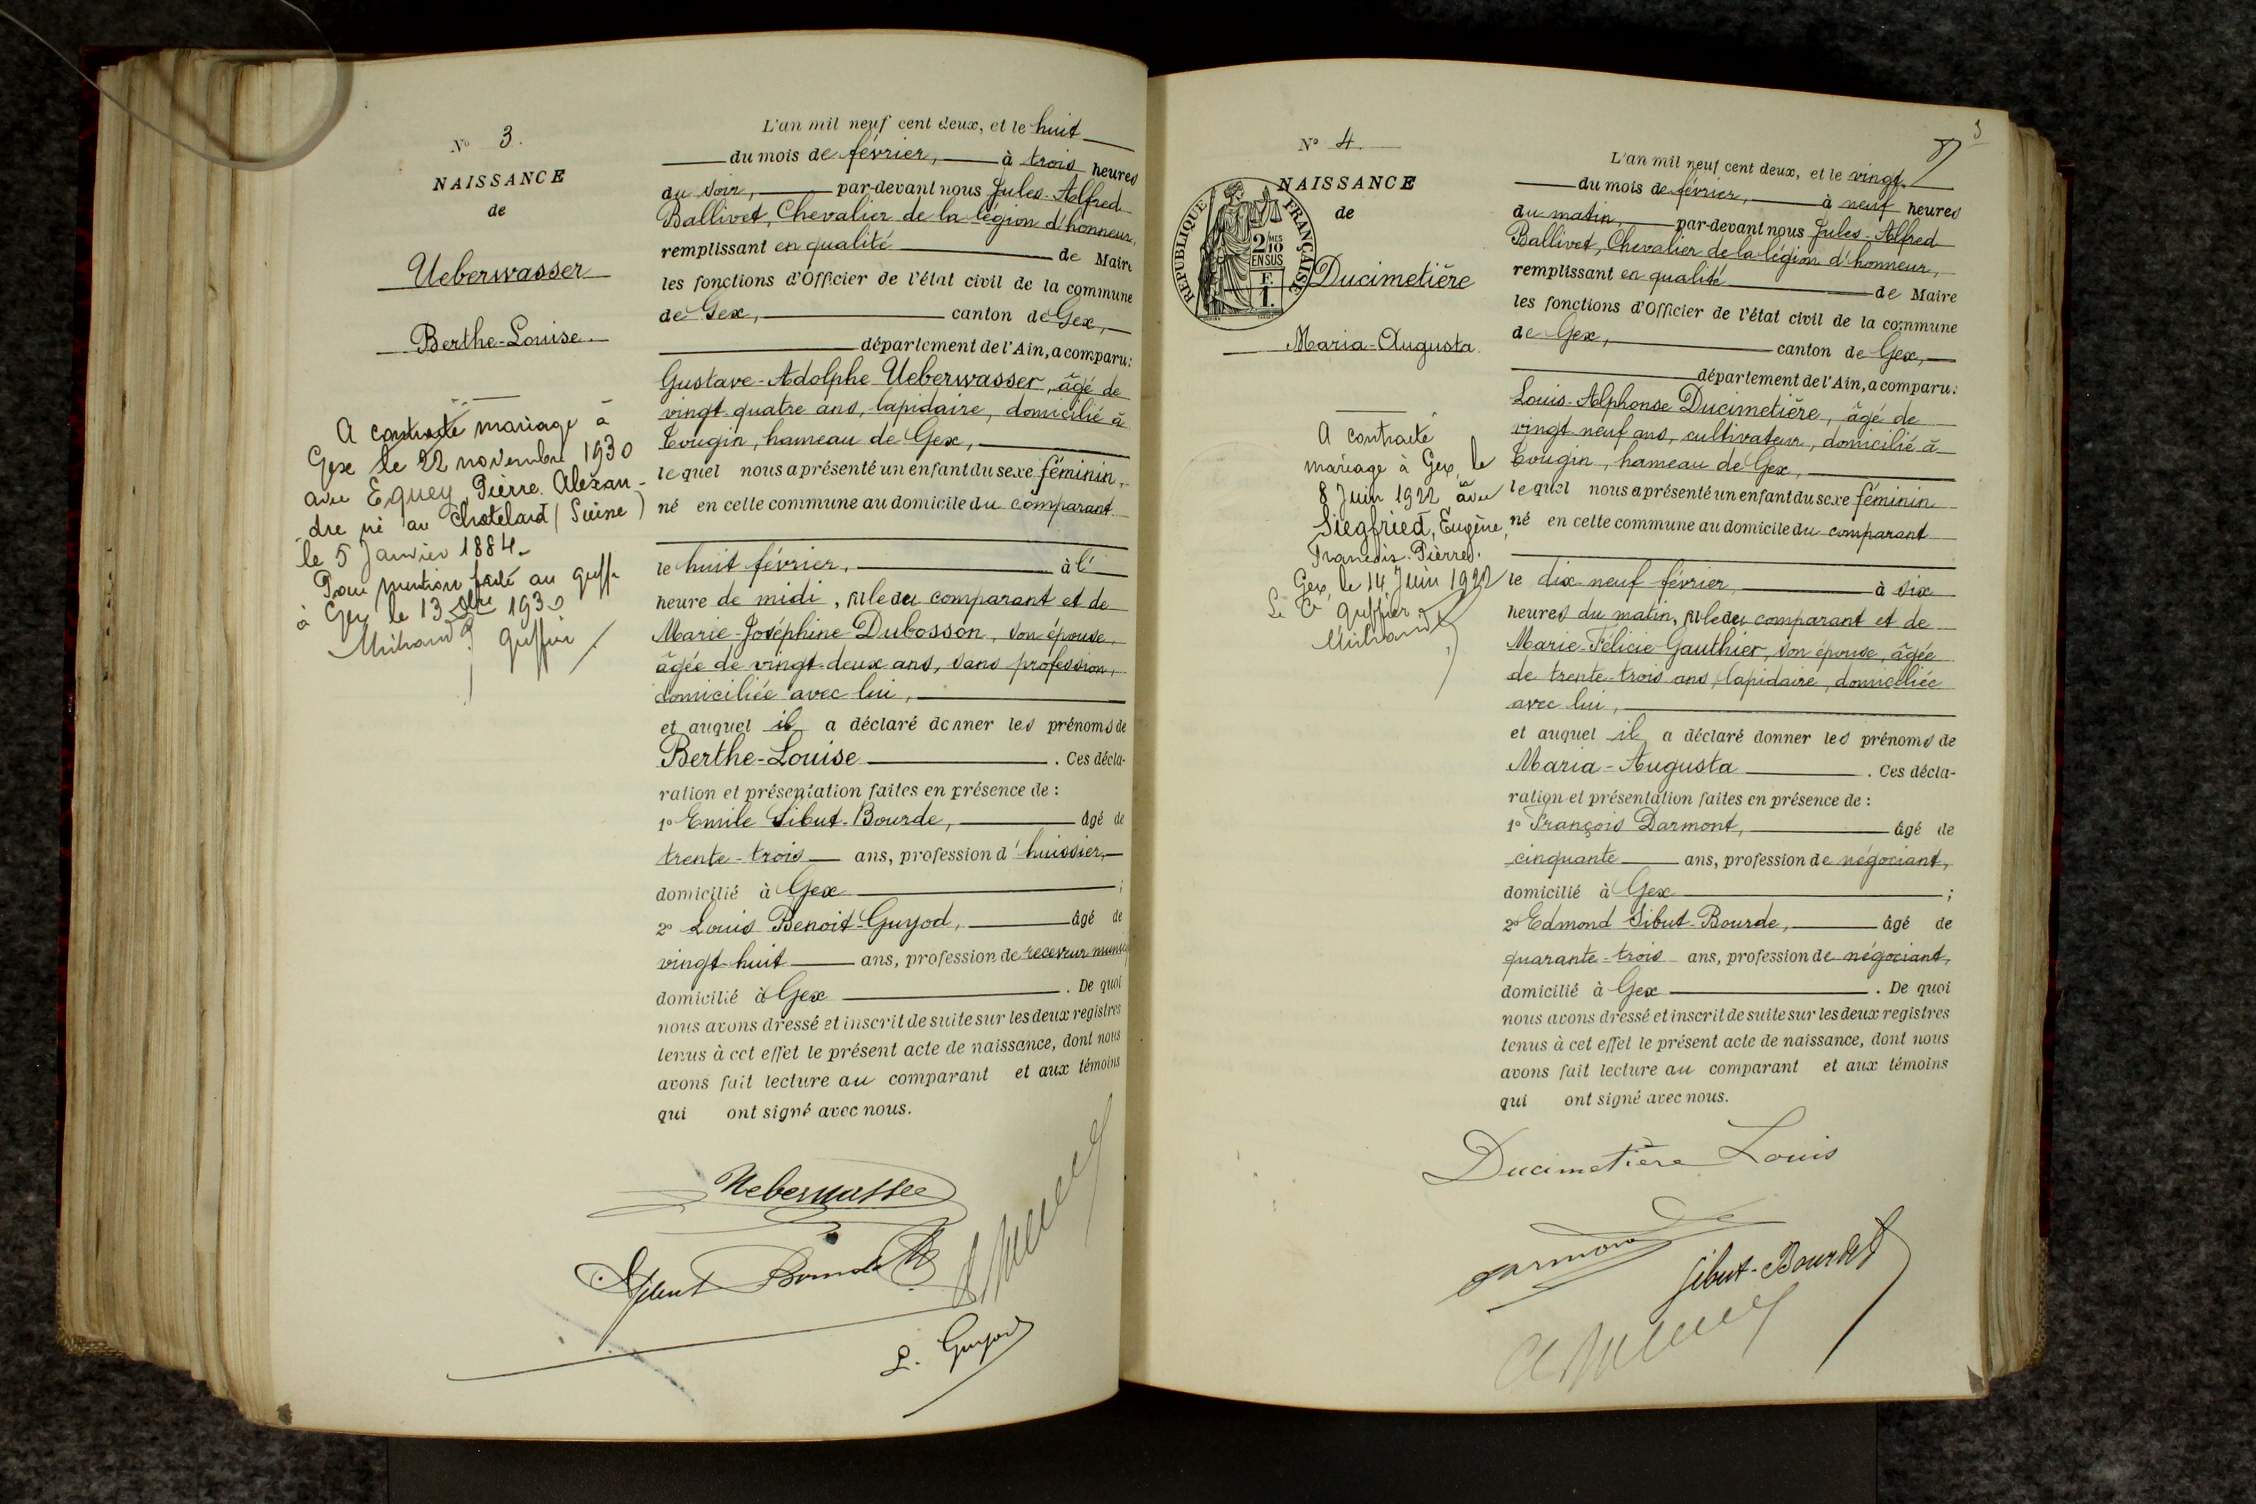 N° 3.
NAISSANCE
de
Ueberwasser
Berthe-Louise
A contracté mariage à
Gex le 22 novembre 1930
avec Equey Pierre Alexan-
dre né au Chatelard (Suisse)
le 5 Janvier 1884.
Pour mention faite au greffe
à Gex le 13 Xbre 1930
greffier
L'an mil neuf cent deux, et le huit
du mois de février, à trois heures
du soir, par-devant nous Jules-Alfred
Ballivet, Chevalier de la légion d'honneur,
remplissant en qualité de Maire
les fonctions d'Officier de l'état civil de la commune
de Gex, canton de Gex,
département de l'Ain, a comparu:
Gustave-Adolphe Ueberwasser, âgé de
vingt-quatre ans, lapidaire, domicilié à
Tougin, hameau de Gex,
lequel nous a présenté un enfant du sexe féminin,
né en cette commune au domicile du comparant
le huit février, à l'
heure de midi, fille du comparant et de
Marie-Joséphine Dubosson, son épouse,
âgée de vingt-deux ans, sans profession,
domiciliée avec lui,
et auquel il a déclaré donner les prénoms de
Berthe-Louise . Ces décla-
ration et présentation faites en présence de :
1° Emile Sibut-Bourde, âgé de
trente-trois ans, profession d'huissier,
domicilié à Gex ;
2° Louis Benoit-Guyod, âgé de
vingt-huit ans, profession de receveur munici
domicilié à Gex . De quoi
nous avons dressé et inscrit de suite sur les deux registres
tenus à cet effet le présent acte de naissance, dont nous
avons fait lecture au comparant et aux témoins
qui ont signé avec nous.
Ueberwasser
Sibut Bourde
L. Guyod
3
N° 4.
NAISSANCE
de
RÉPUBLIQUE FRANÇAISE
2 MES
10
EN SUS
F.
1.
Ducimetière
Maria-Augusta
A contracté
mariage à Gex, le
8 Juin 1922 avec
Siegfried, Eugène,
François-Pierre.
Gex, le 14 Juin 1922
Le Cis greffier
L'an mil neuf cent deux, et le vingt
du mois de février, à neuf heures
du matin, par-devant nous Jules-Alfred
Ballivet, Chevalier de la légion d'honneur,
remplissant en qualité de Maire
les fonctions d'Officier de l'état civil de la commune
de Gex, canton de Gex,
département de l'Ain, a comparu:
Louis-Alphonse Ducimetière, âgé de
vingt neuf ans, cultivateur, domicilié à
Tougin, hameau de Gex,
lequel nous a présenté un enfant du sexe féminin
né en cette commune au domicile du comparant
le dix-neuf février à six
heures du matin, fille du comparant et de
Marie-Félicie Gauthier, son épouse, âgée
de trente-trois ans, lapidaire, domiciliée
avec lui,
et auquel il a déclaré donner les prénoms de
Maria-Augusta . Ces décla-
ration et présentation faites en présence de :
1° François Darmont, âgé de
cinquante ans, profession de négociant,
domicilié à Gex ;
2° Edmond Sibut-Bourde, âgé de
quarante-trois ans, profession de négociant,
domicilié à Gex . De quoi
nous avons dressé et inscrit de suite sur les deux registres
tenus à cet effet le présent acte de naissance, dont nous
avons fait lecture au comparant et aux témoins
qui ont signé avec nous.
Ducimetière Louis
Darmont
Sibut-Bourde